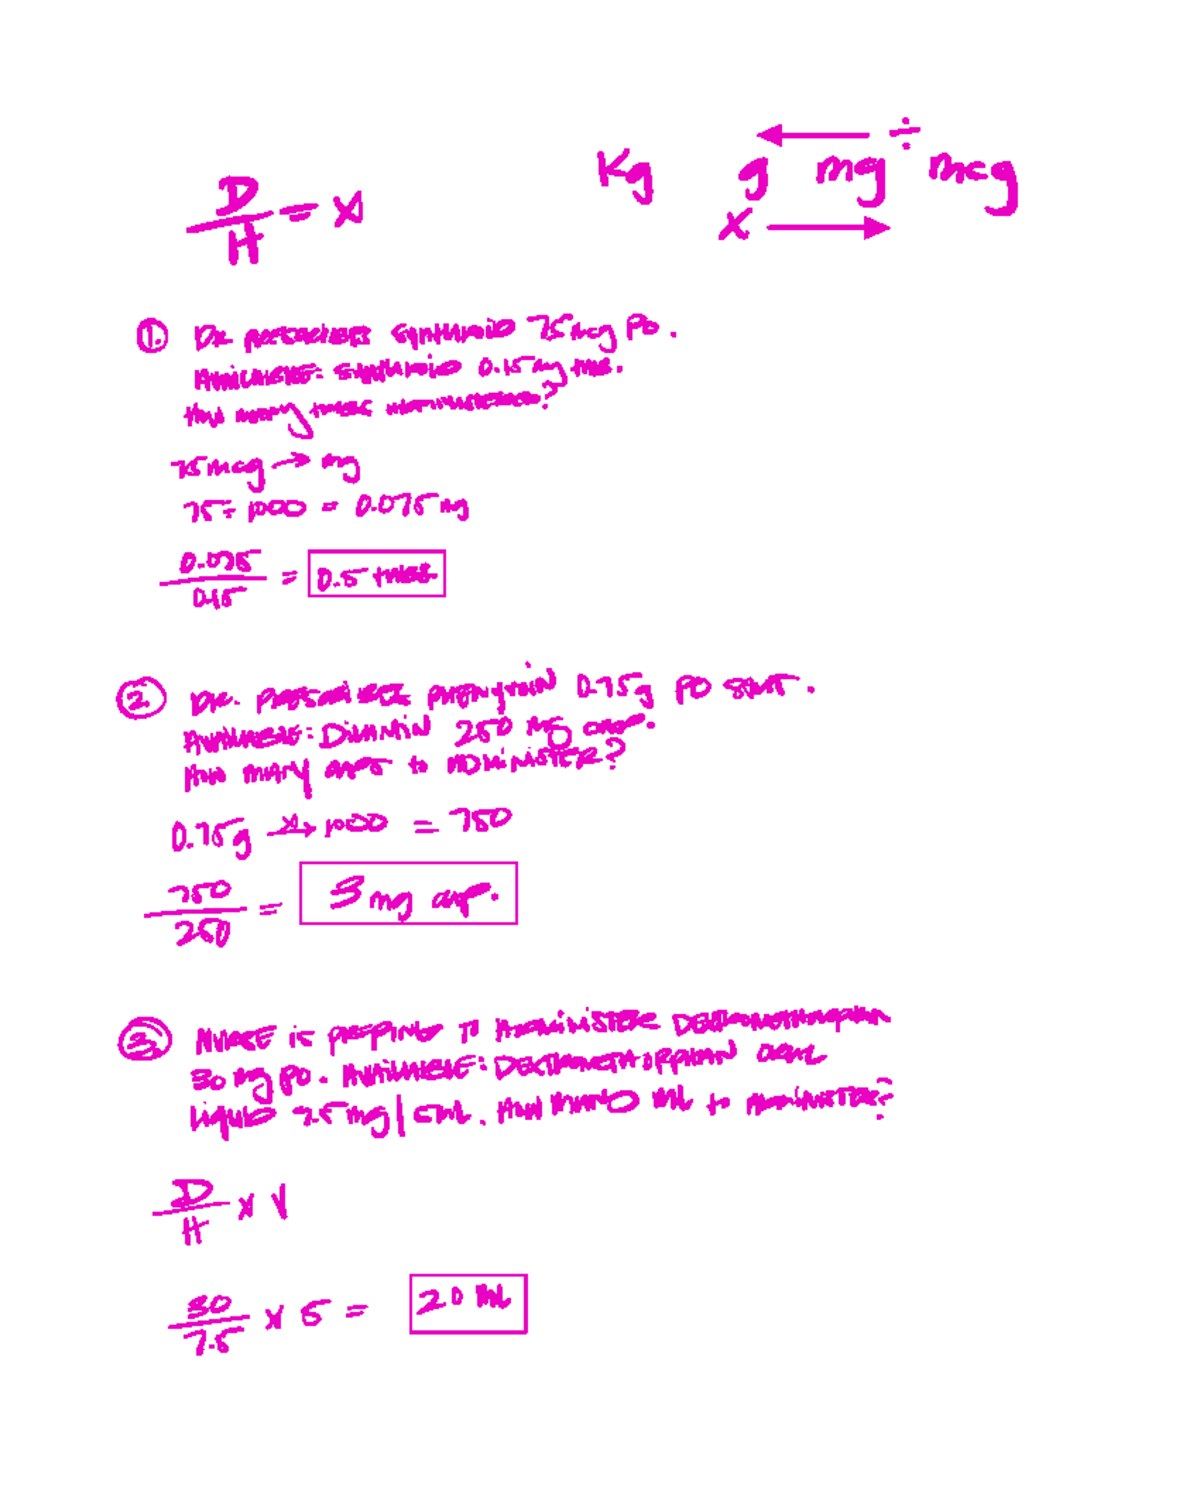 D/H = X
Kg g mg mcg
÷
X
1. Dr. prescribes Synthroid 75 mcg PO.
Available: Synthroid 0.15 mg tabs.
How many tabs administered?
75 mcg → mg
75 ÷ 1000 = 0.075 mg
0.075/0.15 = 0.5 tabs
2. Dr. prescribes phenytoin 0.75g PO stat.
Available: Dilantin 250 mg caps.
How many caps to administer?
0.75g x→ 1000 = 750
750/250 = 3 mg cap.
3. Nurse is preping to administer dextromethorphan
30 mg po. Available: Dextrometh orphan oral
liquid 7.5 mg/5mL. How many mL to administer?
D/H x V
30/7.5 x 5 = 20 mL